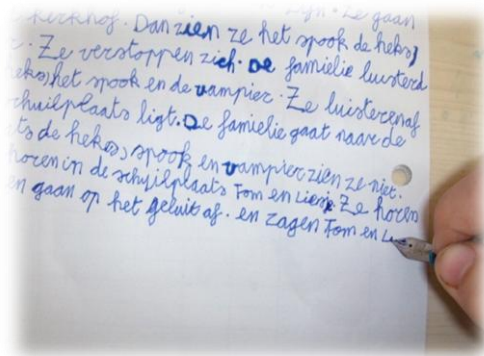 zijn. Ze gaan
kerkhof. Dan zien ze het spook de heks,
. Ze verstoppen zich. De famielie luisterd
heks, het spook en de vampier. Ze luisteren af
schuilplaats ligt. De famielie gaat naar de
ats de heks, spook en vampier zien ze niet.
horen in de schuilplaats Tom en Lien. Ze horen
en gaan op het geluit af. en zagen Tom en Li